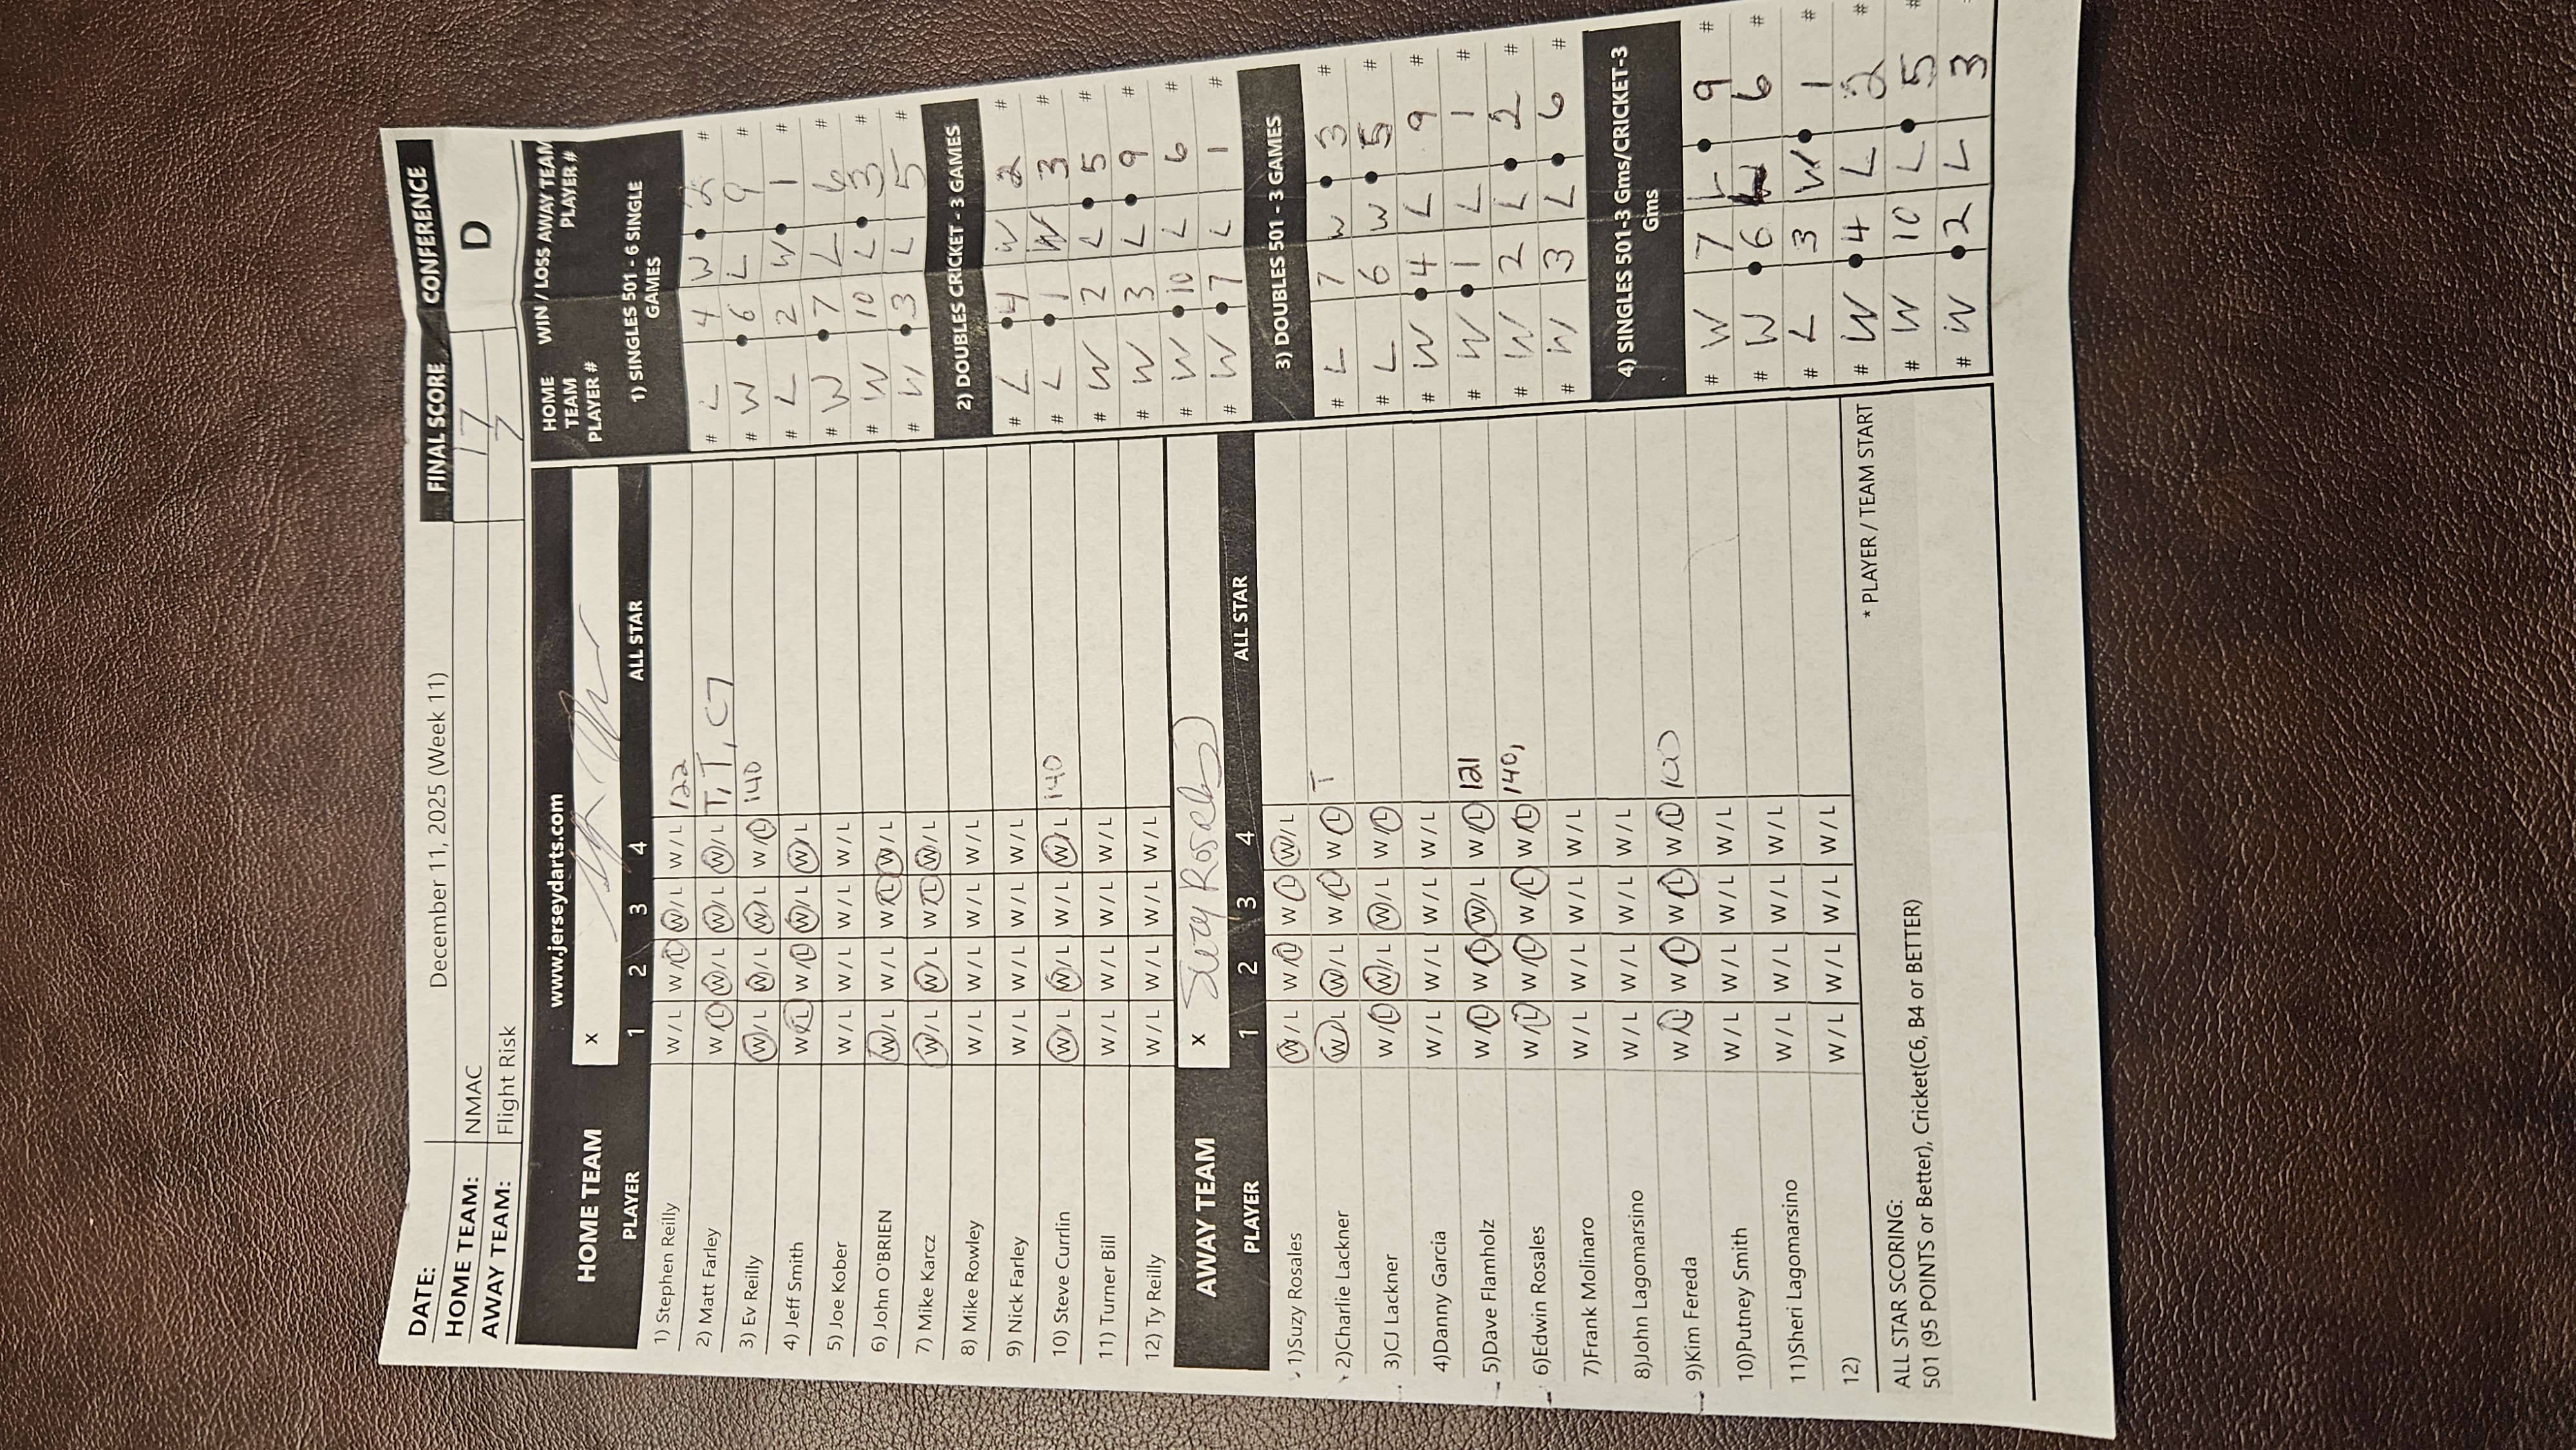 DATE: December 11, 2025 (Week 11) FINAL SCORE CONFERENCE
HOME TEAM: NMAC 17 D
AWAY TEAM: Flight Risk 7
www.jerseydarts.com
HOME TEAM x
PLAYER 1 2 3 4 ALL STAR
1) Stephen Reilly W / L W / L W / L W / L 122
2) Matt Farley W / L W / L W / L W / L T, T, C7
3) Ev Reilly W / L W / L W / L W / L 140
4) Jeff Smith W / L W / L W / L W / L
5) Joe Kober W / L W / L W / L W / L
6) John O'BRIEN W / L W / L W / L W / L
7) Mike Karcz W / L W / L W / L W / L
8) Mike Rowley W / L W / L W / L W / L
9) Nick Farley W / L W / L W / L W / L
10) Steve Currlin W / L W / L W / L W / L 140
11) Turner Bill W / L W / L W / L W / L
12) Ty Reilly W / L W / L W / L W / L
AWAY TEAM x Suzy Rosales
PLAYER 1 2 3 4 ALL STAR
1)Suzy Rosales W / L W / L W / L W / L
2)Charlie Lackner W / L W / L W / L W / L T
3)CJ Lackner W / L W / L W / L W / L
4)Danny Garcia W / L W / L W / L W / L
5)Dave Flamholz W / L W / L W / L W / L 121
6)Edwin Rosales W / L W / L W / L W / L 140,
7)Frank Molinaro W / L W / L W / L W / L
8)John Lagomarsino W / L W / L W / L W / L
9)Kim Fereda W / L W / L W / L W / L 100
10)Putney Smith W / L W / L W / L W / L
11)Sheri Lagomarsino W / L W / L W / L W / L
12) W / L W / L W / L W / L
* PLAYER / TEAM START
ALL STAR SCORING:
501 (95 POINTS or Better), Cricket(C6, B4 or BETTER)
HOME TEAM PLAYER # WIN / LOSS AWAY TEAM PLAYER #
1) SINGLES 501 - 6 SINGLE
GAMES
# L 4 W 2 #
# W 6 L 9 #
# L 2 W 1 #
# W 7 L 6 #
# W 10 L 3 #
# W 3 L 5 #
2) DOUBLES CRICKET - 3 GAMES
# L 4 W 2 #
# L 1 W 3 #
# W 2 L 5 #
# W 3 L 9 #
# W 10 L 6 #
# W 7 L 1 #
3) DOUBLES 501 - 3 GAMES
# L 7 W 3 #
# L 6 W 5 #
# W 4 L 9 #
# W 1 L 1 #
# W 2 L 2 #
# W 3 L 6 #
4) SINGLES 501-3 Gms/CRICKET-3
Gms
# W 7 L 9 #
# W 6 6 #
# L 3 W 1 #
# W 4 L 2 #
# W 10 L 5 #
# W 2 L 3